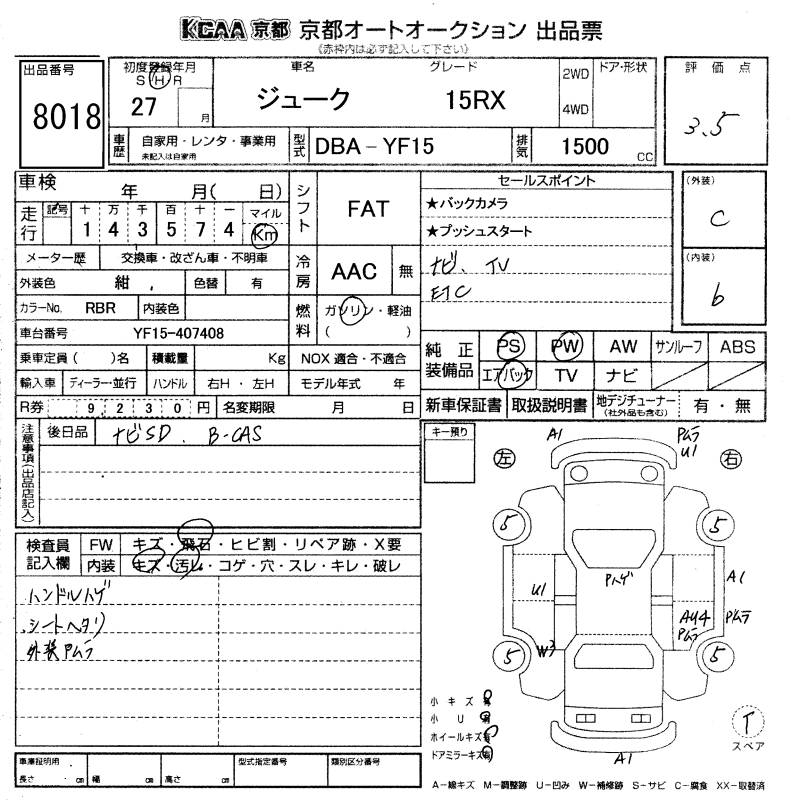 KCAA 京都 京都オートオークション 出品票
《赤枠内は必ず記入して下さい》
出品番号
8018
初度登録年月
S H R
27 月
車名
ジューク
グレード
15RX
2WD
4WD
ドア・形状
評価点
3.5
車歴
自家用・レンタ・事業用
未記入は自家用
型式
DBA－YF15
排気
1500 cc
車検 年 月( 日)
走行
記号 十 万 千 百 十 一 マイル
1 4 3 5 7 4 Km
メーター歴 交換車・改ざん車・不明車
外装色 紺 色替 有
カラーNo. RBR 内装色
車台番号 YF15-407408
乗車定員 ( )名 積載量 Kg NOX 適合・不適合
輸入車 ディーラー・並行 ハンドル 右H・左H モデル年式 年
R券 9,230円 名変期限 月 日
シフト FAT
冷房 AAC 無
燃料 ガソリン・軽油
( )
セールスポイント
★バックカメラ
★プッシュスタート
ナビ、TV
ETC
(外装)
C
(内装)
b
純正装備品
PS PW AW サンルーフ ABS
エアバック TV ナビ
新車保証書 取扱説明書 地デジチューナー(社外品も含む) 有・無
注意事項(出品店記入)
後日品 ナビSD、B-CAS
検査員記入欄
FW キズ・飛石・ヒビ割・リペア跡・X要
内装 キズ・汚レ・コゲ・穴・スレ・キレ・破レ
ハンドルハゲ
シートヘタリ
外装Pムラ
キー預り
左 右
A1 Pムラ
U1
5 5
U1 Pハゲ A1
AU4 Pムラ
Pムラ
5 W3 5
A1
小キズ 有
小 U 有
ホイールキズ有
ドアミラーキズ有
T
スペア
A－線キズ M－調整跡 U－凹み W－補修跡 S－サビ C－腐食 XX－取替済
車庫証明用
長さ cm 幅 cm 高さ cm
型式指定番号
類別区分番号